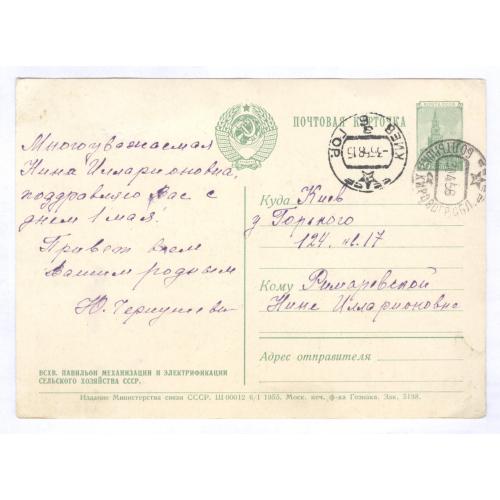 ПОЧТОВАЯ КАРТОЧКА
ПОЧТА СССР
Многоуважаемая
Нина Илларионовна,
поздравляю Вас с
днем 1 мая.
Привет всем
Вашим родным
Ю.
КИЕВ
ГОР.
Куда Киев
у Горького
124, кв. 17
Кому Римаревской
Нине Илларионовне
Адрес отправителя
ВСХВ. ПАВИЛЬОН МЕХАНИЗАЦИИ И ЭЛЕКТРИФИКАЦИИ
СЕЛЬСКОГО ХОЗЯЙСТВА СССР.
Издание Министерства связи СССР. Ш 00012 6/I 1955. Моск. печ. ф-ка Гознака. Зак. 5198.